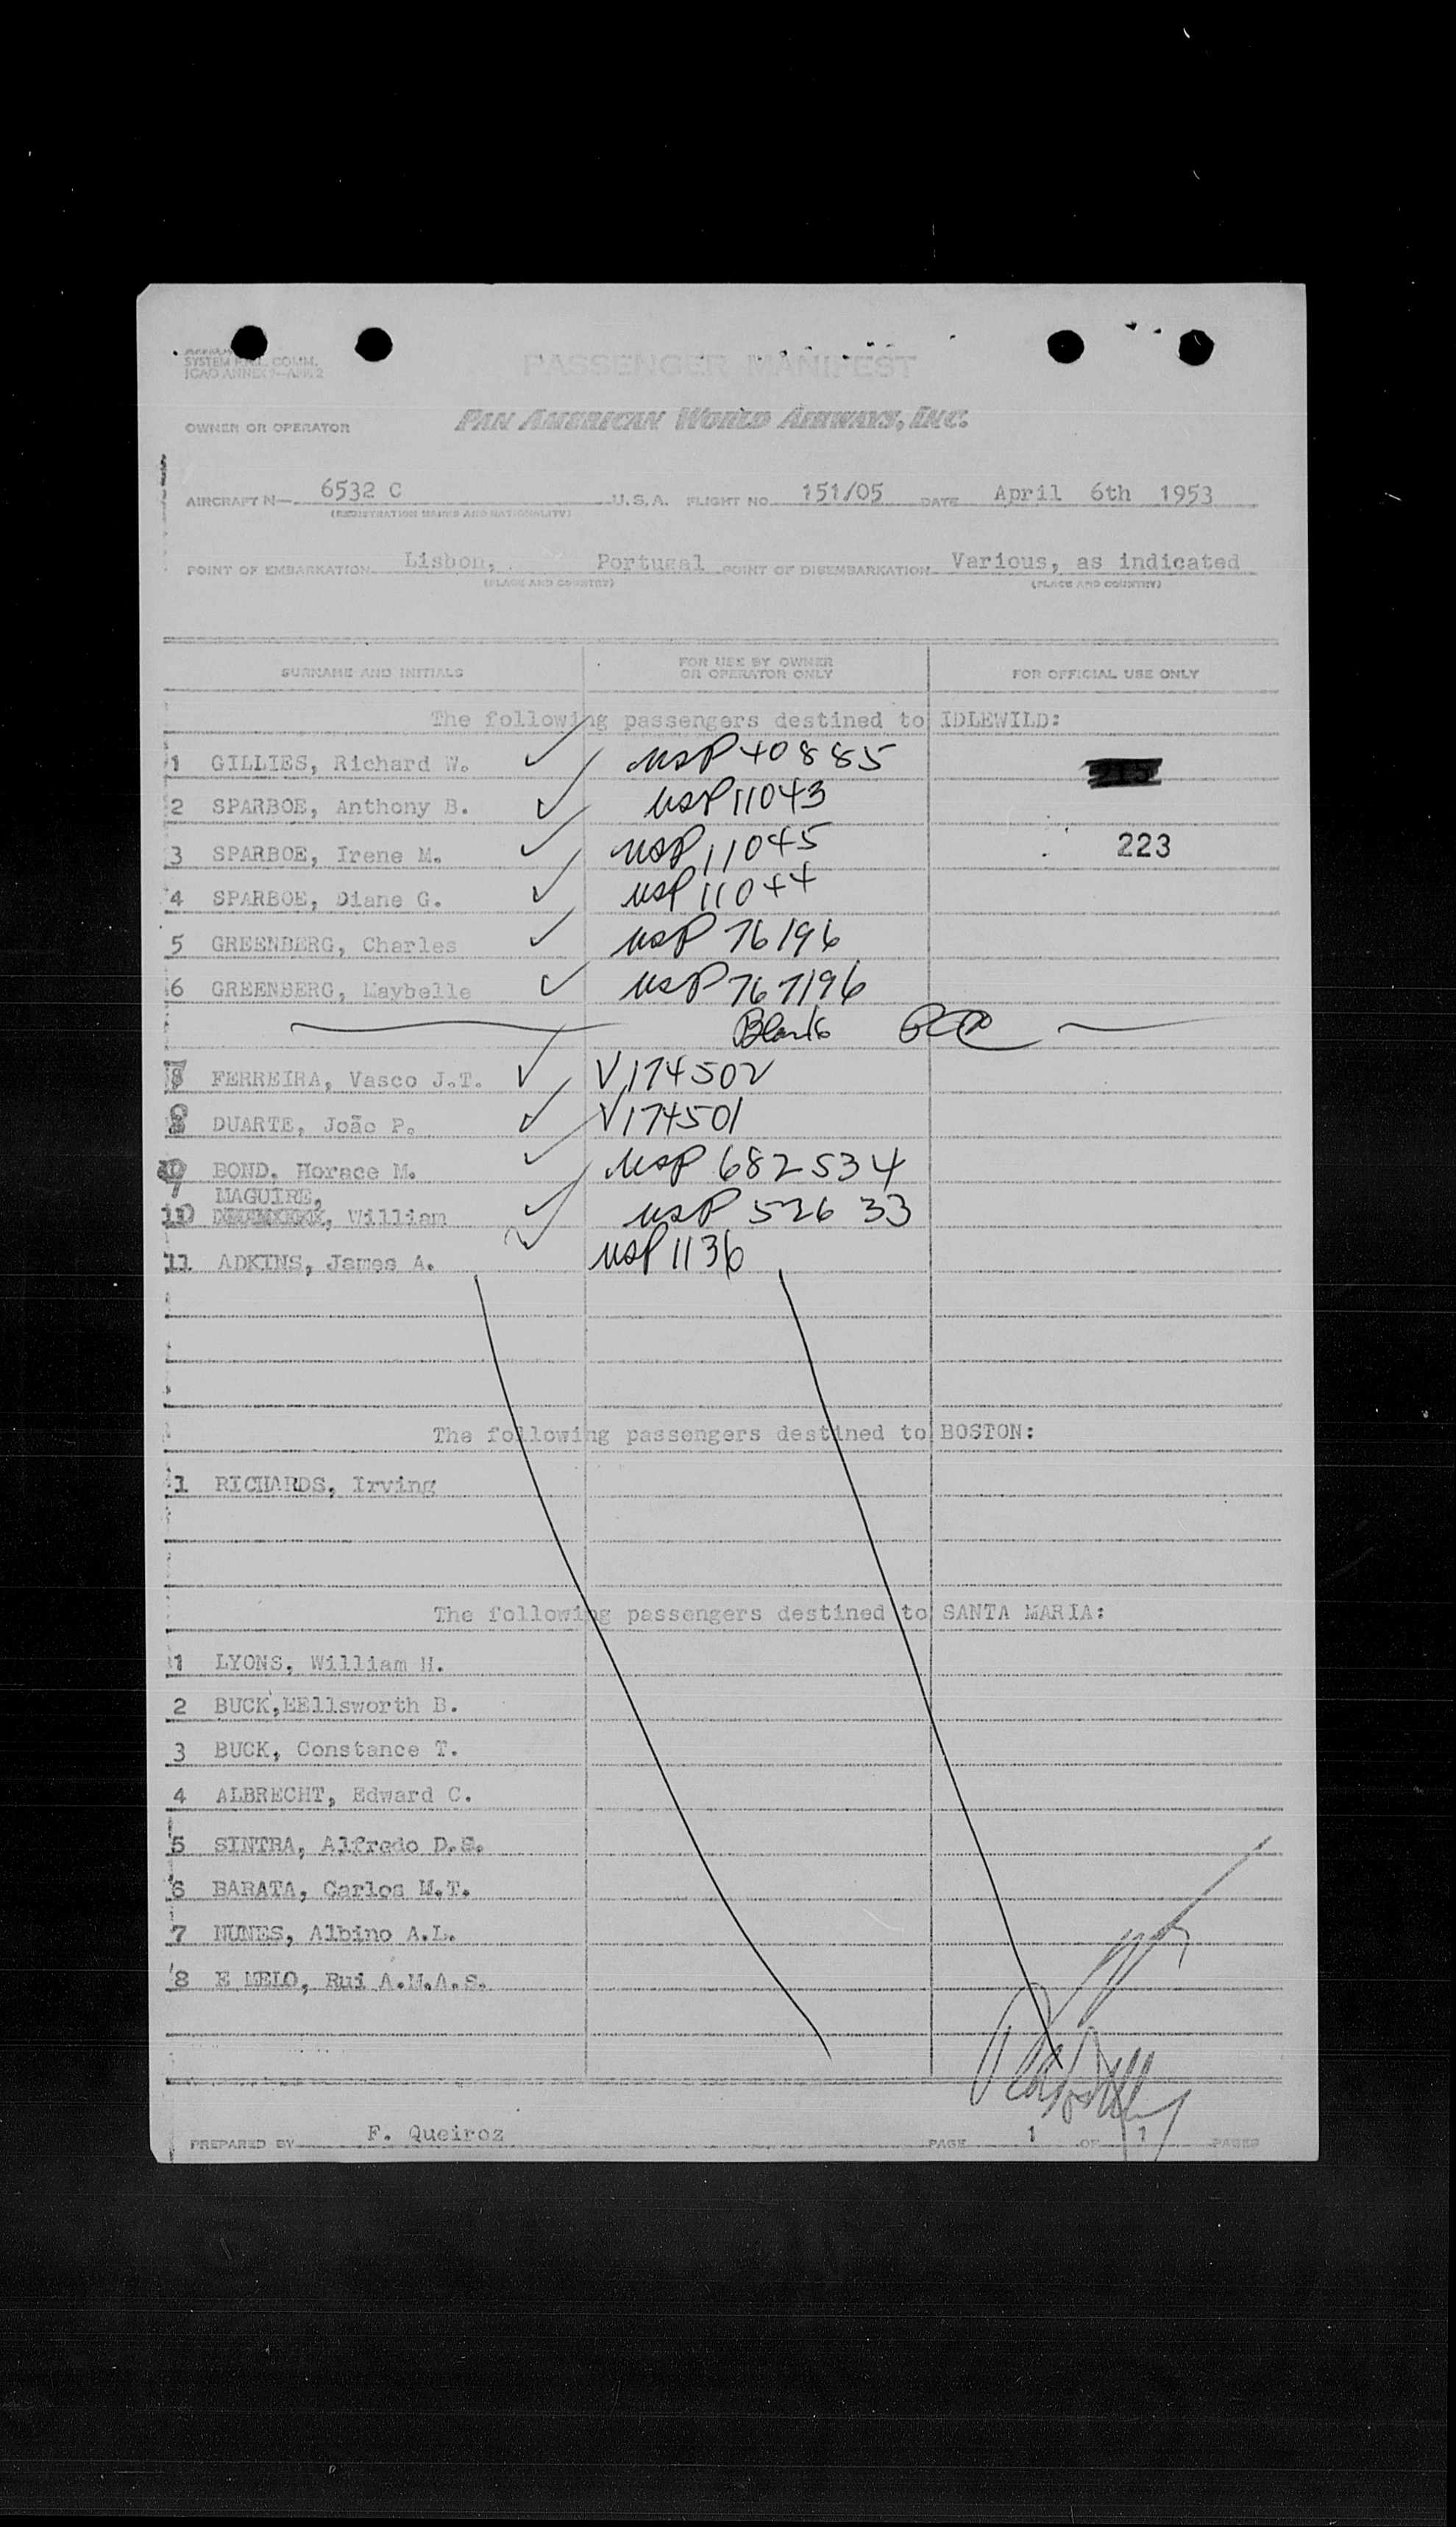 SYSTEM FAL. COMM.
ICAO ANNEX 9-APP. 2
PASSENGER MANIFEST
OWNER OR OPERATOR PAN AMERICAN WORLD AIRWAYS, INC.
AIRCRAFT N- 6532 C U.S.A. FLIGHT NO. 151/05 DATE April 6th 1953
(REGISTRATION MARKS AND NATIONALITY)
POINT OF EMBARKATION Lisbon, Portugal POINT OF DISEMBARKATION Various, as indicated
(PLACE AND COUNTRY) (PLACE AND COUNTRY)
SURNAME AND INITIALS FOR USE BY OWNER OR OPERATOR ONLY FOR OFFICIAL USE ONLY
The following passengers destined to IDLEWILD:
1 GILLIES, Richard W. ✓ USP 40885
2 SPARBOE, Anthony B. ✓ USP 11043
3 SPARBOE, Irene M. ✓ USP 11045 223
4 SPARBOE, Diane G. ✓ USP 11044
5 GREENBERG, Charles ✓ USP 76196
6 GREENBERG, Maybelle ✓ USP 767196
Blank
FERREIRA, Vasco J.T. ✓ V174502
DUARTE, João P. ✓ V174501
9 BOND, Horace M. ✓ USP 682534
MAGUIRE,
10 William ✓ USP 526 33
11 ADKINS, James A. ✓ USP 1136
The following passengers destined to BOSTON:
1 RICHARDS, Irving
The following passengers destined to SANTA MARIA:
1 LYONS, William H.
2 BUCK, EEllsworth B.
3 BUCK, Constance T.
4 ALBRECHT, Edward C.
5 SINTRA, Alfredo D.S.
6 BARATA, Carlos M.T.
7 NUNES, Albino A.L.
8 E MELO, Rui A.M.A.S.
PREPARED BY F. Queiroz PAGE 1 OF 1 PAGES